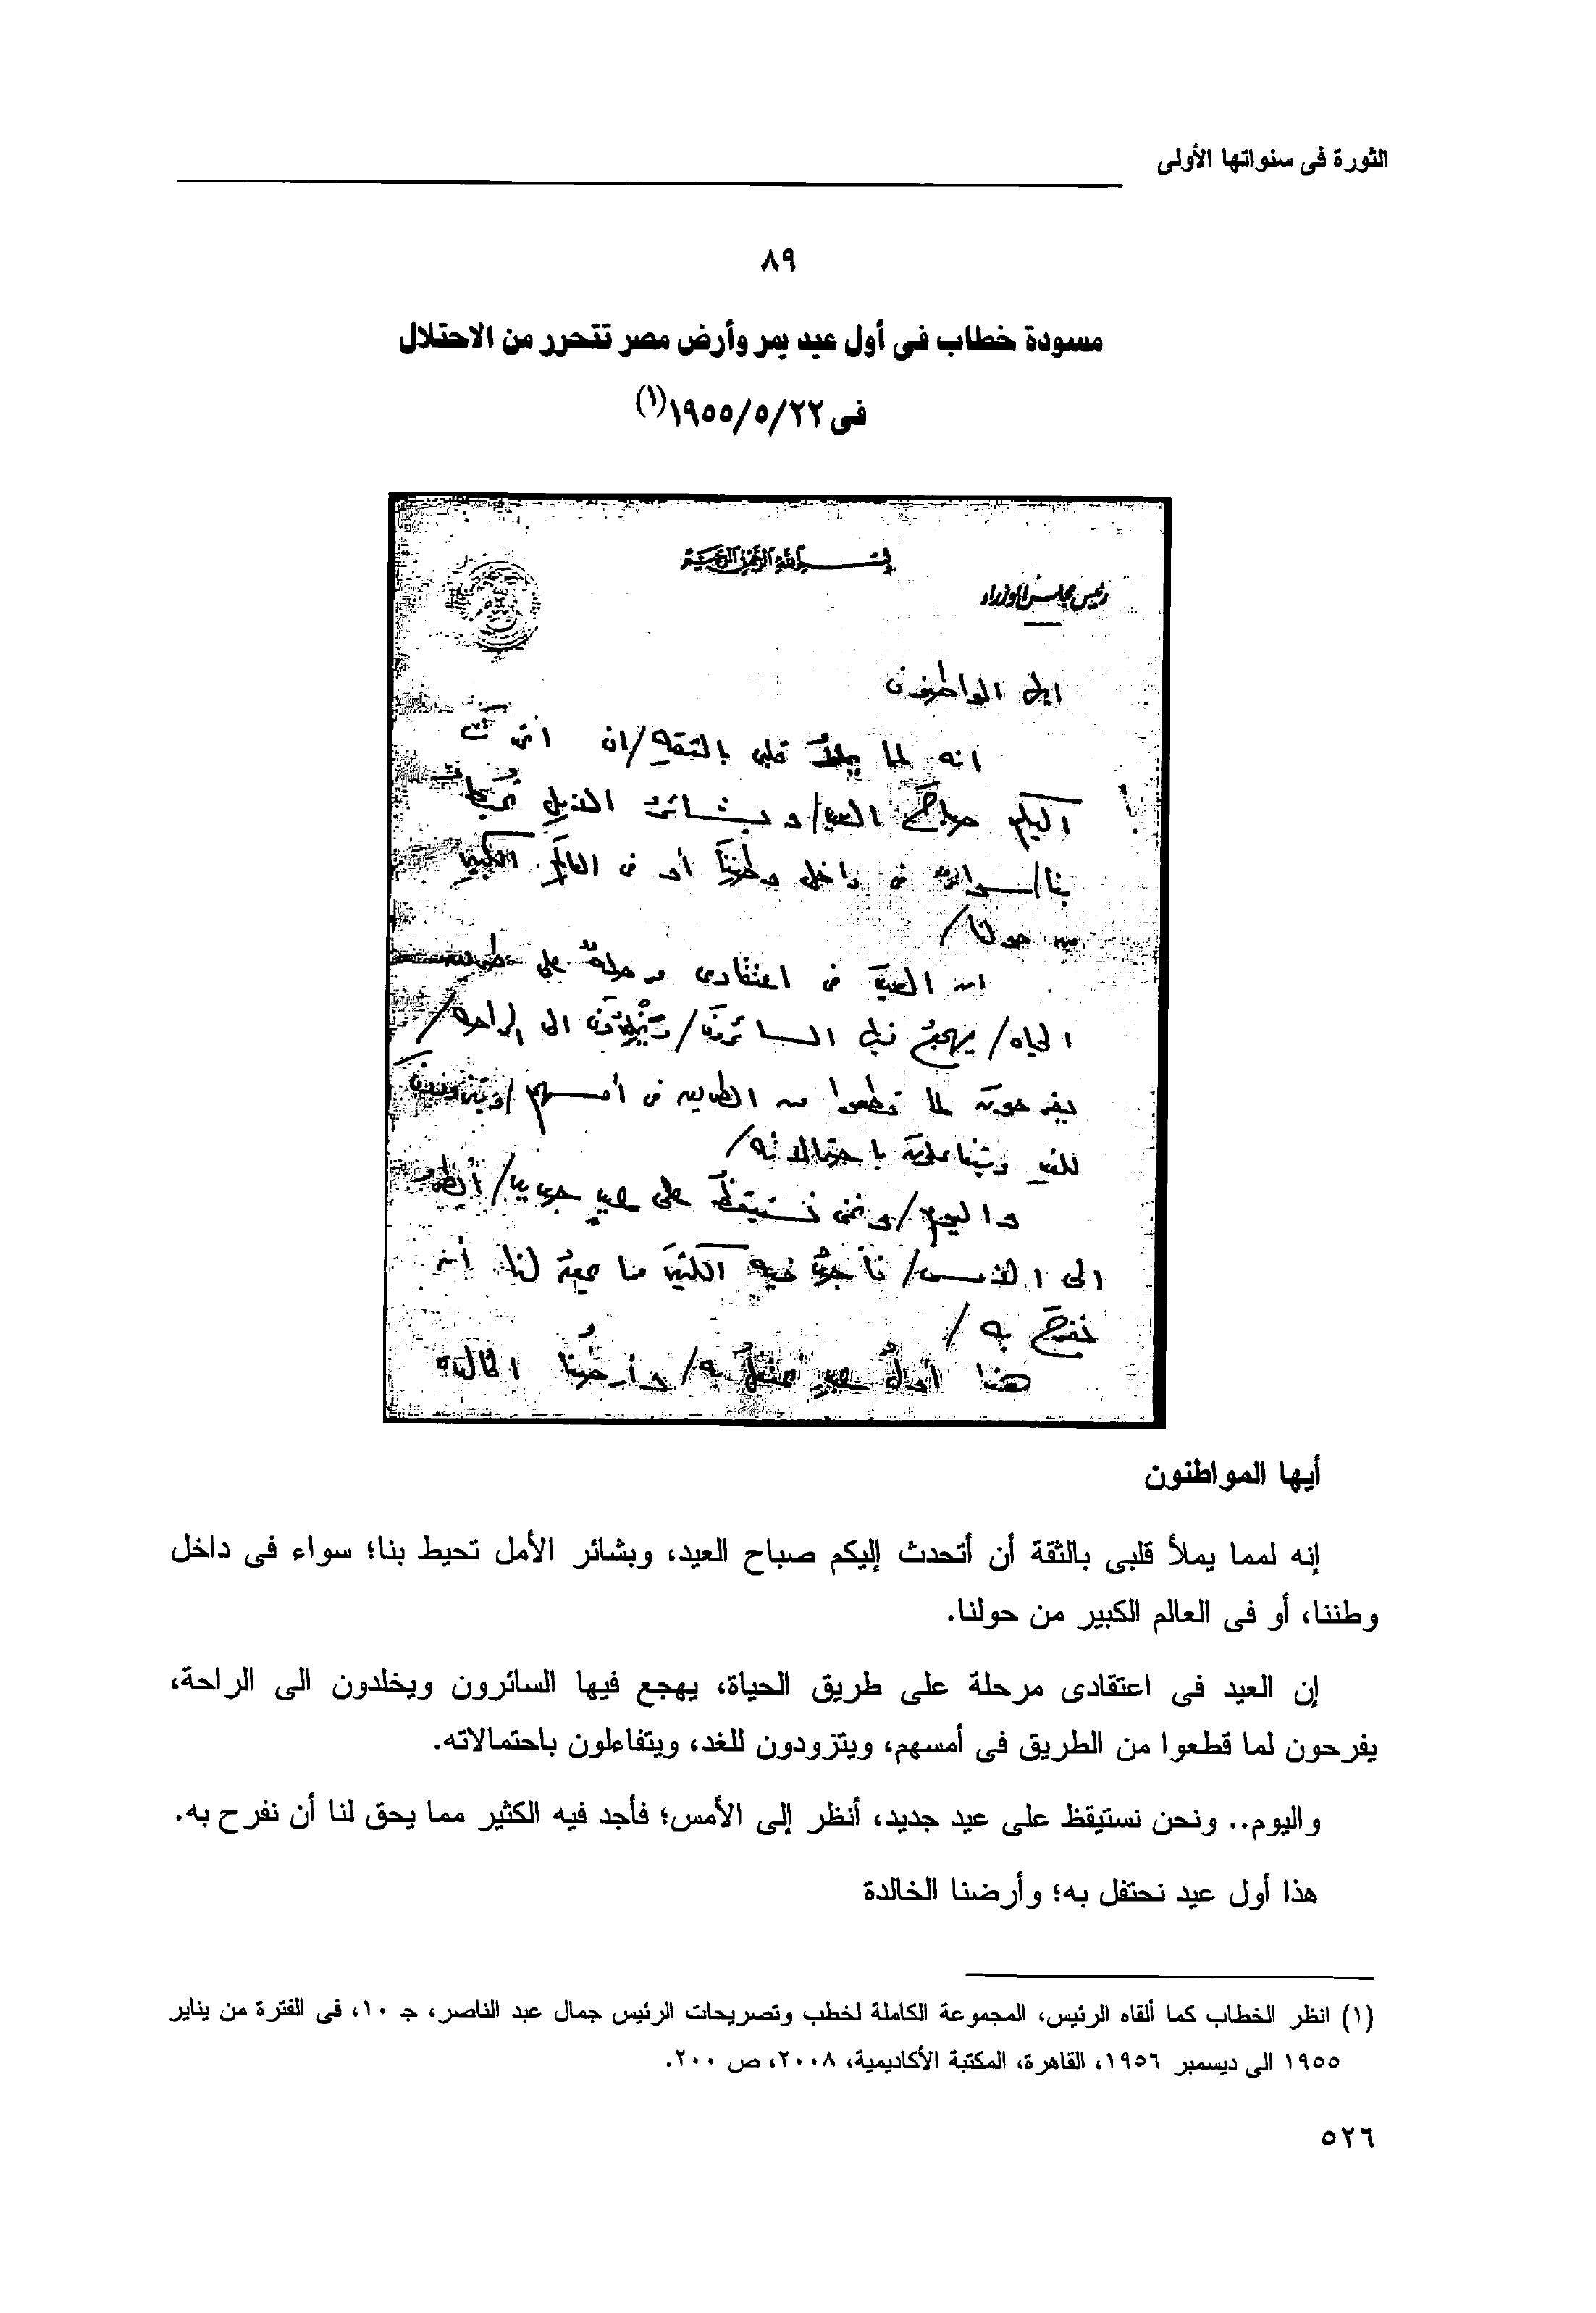 الثورة فى سنواتها الأولى
٨٩
مسودة خطاب فى أول عيد يمر وأرض مصر تتحرر من الاحتلال
فى ١٩٥٥/٥/٢٢(١)
بسم الله الرحمن الرحيم
رئيس مجلس الوزراء
ايها المواطنون
انه لمما يملأ قلبى بالثقه/ان اتحدث
اليكم صباح العيد/وبشائر الامل تحيط
بنا/سواء فى داخل وطننا أو فى العالم الكبير
من حولنا/
ان العيد فى اعتقادى مرحلة على طريق
الحياه/يهجع فيها السائرون/ويخلدون الى الراحه/
يفرحون لما قطعوا من الطريق فى أمسهم/ويتزودون
للغد ويتفاءلون باحتمالاته/
واليوم/ونحن نستيقظ على عيد جديد/أنظر
الى الامس/فأجد فيه الكثير مما يحق لنا أن
نفرح به/
هذا أول عيد نحتفل به/وأرضنا الخالده
أيها المواطنون
إنه لمما يملأ قلبى بالثقة أن أتحدث إليكم صباح العيد، وبشائر الأمل تحيط بنا؛ سواء فى داخل
وطننا، أو فى العالم الكبير من حولنا.
إن العيد فى اعتقادى مرحلة على طريق الحياة، يهجع فيها السائرون ويخلدون الى الراحة،
يفرحون لما قطعوا من الطريق فى أمسهم، ويتزودون للغد، ويتفاءلون باحتمالاته.
واليوم.. ونحن نستيقظ على عيد جديد، أنظر إلى الأمس؛ فأجد فيه الكثير مما يحق لنا أن نفرح به.
هذا أول عيد نحتفل به؛ وأرضنا الخالدة
(١) انظر الخطاب كما ألقاه الرئيس، المجموعة الكاملة لخطب وتصريحات الرئيس جمال عبد الناصر، جـ ١٠، فى الفترة من يناير
١٩٥٥ الى ديسمبر ١٩٥٦، القاهرة، المكتبة الأكاديمية، ٢٠٠٨، ص ٢٠٠.
٥٢٦